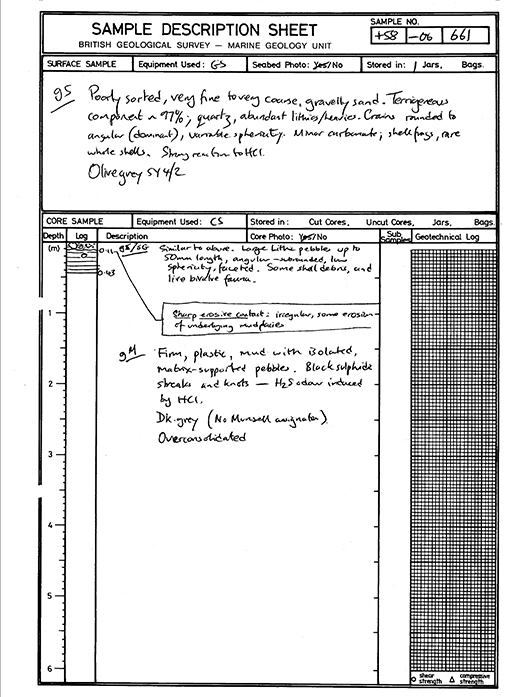 SAMPLE DESCRIPTION SHEET
BRITISH GEOLOGICAL SURVEY — MARINE GEOLOGY UNIT
SAMPLE NO.
+58 -06 661
SURFACE SAMPLE Equipment Used: GS Seabed Photo: Yes/No Stored in: 1 Jars, Bags.
gS Poorly sorted, very fine to very coarse, gravelly sand. Terrigenous
component ~ 97%; quartz, abundant lithics/heavies. Grains rounded to
angular (dominant), variable sphericity. Minor carbonate; shell frags, rare
whole shells. Strong reaction to HCl.
Olive grey 5Y4/2
CORE SAMPLE Equipment Used: CS Stored in: Cut Cores, Uncut Cores, Jars, Bags
Depth Log Description Core Photo: Yes/No Sub Samples Geotechnical Log
(m) 0.11 gS/SG Similar to above. Large lithic pebbles up to
50mm length, angular-subrounded, low
sphericity, faceted. Some shell debris, and
0.43
live bivalve fauna.
1 Sharp erosive contact: irregular, some erosion
of underlying mud facies
gM Firm, plastic, mud with isolated,
matrix-supported pebbles. Black sulphide
2 streaks and knots — H2S odour induced
by HCl.
Dk. grey (No Munsell assignation)
Overconsolidated
3
4
5
6
shear strength compressive strength